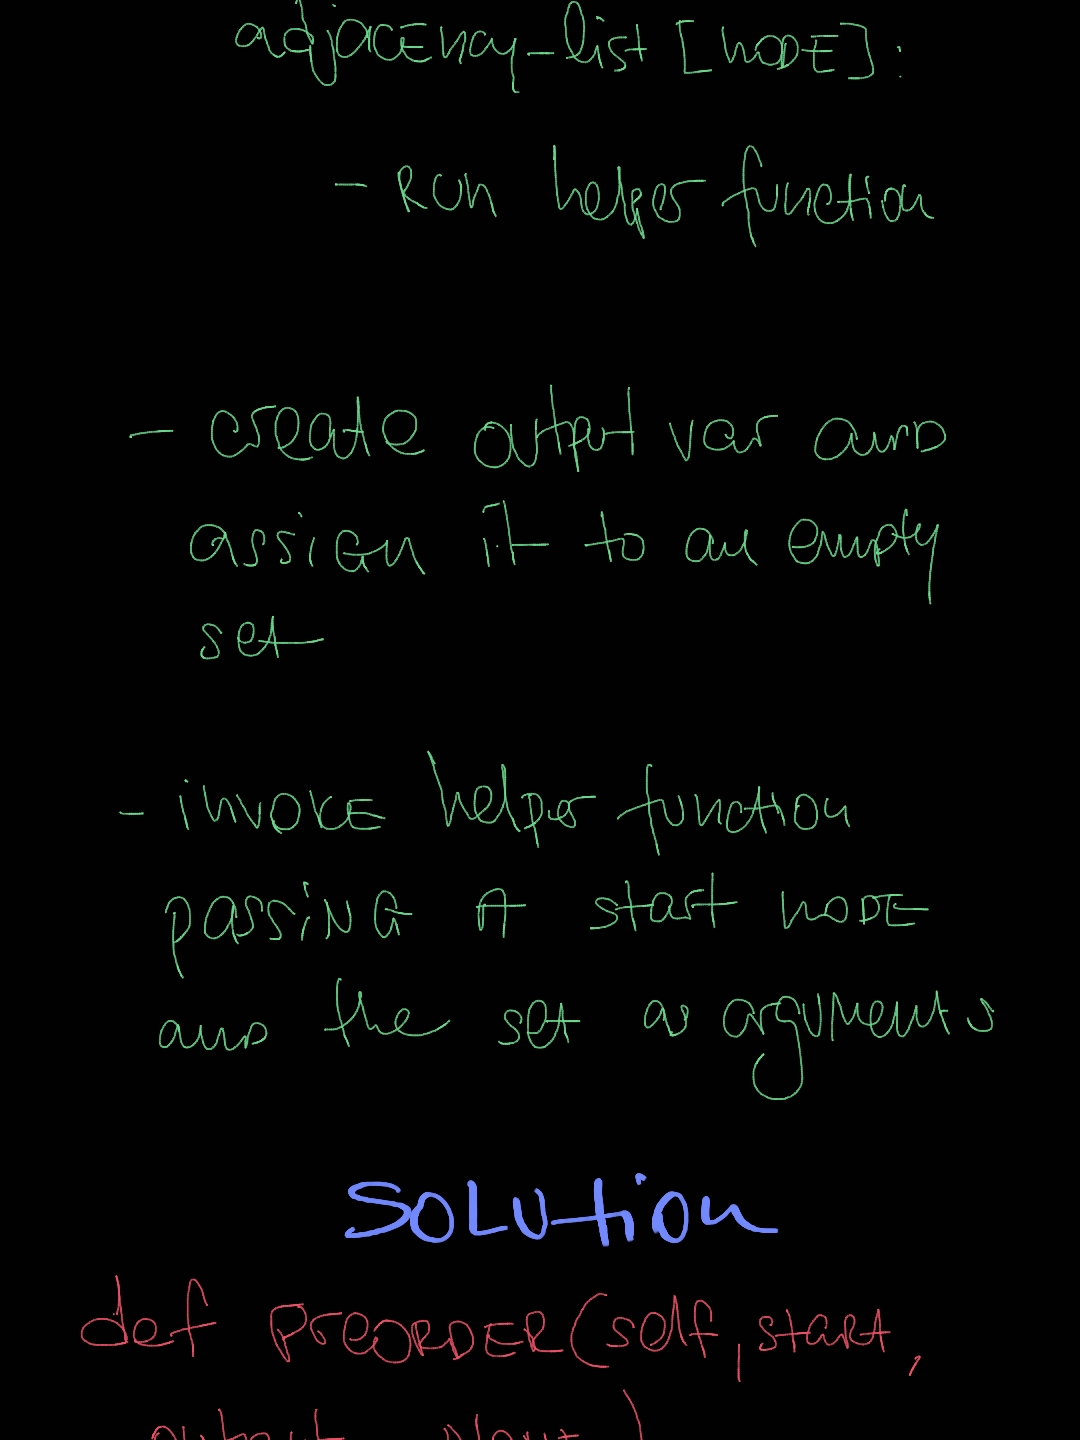 adjacency-list [NODE]:
- RUN helper function
- create output var and
assign it to an empty
set
- invoke helper function
passing A start NODE
and the set as arguments
SOLUTION
def PREORDER(self, start,
output